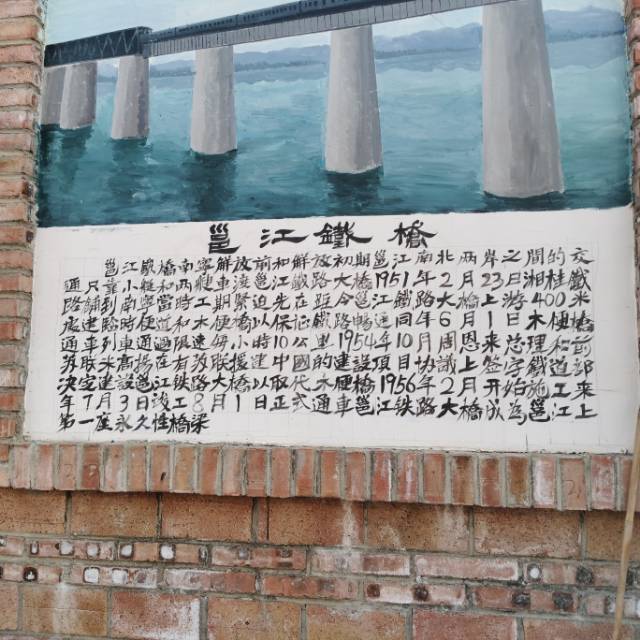 邕江鐵橋
邕江鐵橋南寧解放前和解放初期邕江南北兩岸之間的交
通只重小艇和兩艘車渡邕江鐵路大橋1951年2月23日湘桂鐵
路鋪到南寧當時工期緊迫先在距今邕江鐵路大橋上游400米
處建臨時便道和木便橋以保证鐵路暢通同年6月1日木便橋
通車列車通過限速每小時10公里1954年10月周恩来总理和前
苏联米高扬在有苏联援建中國的建設項目协議上签字鐵道部
决定建設邕江铁路大橋以取代木便橋1956年2月开始施工来
年7月3日竣工8月1日正式通車邕江铁路大橋成為邕江上
第一座永久性橋梁